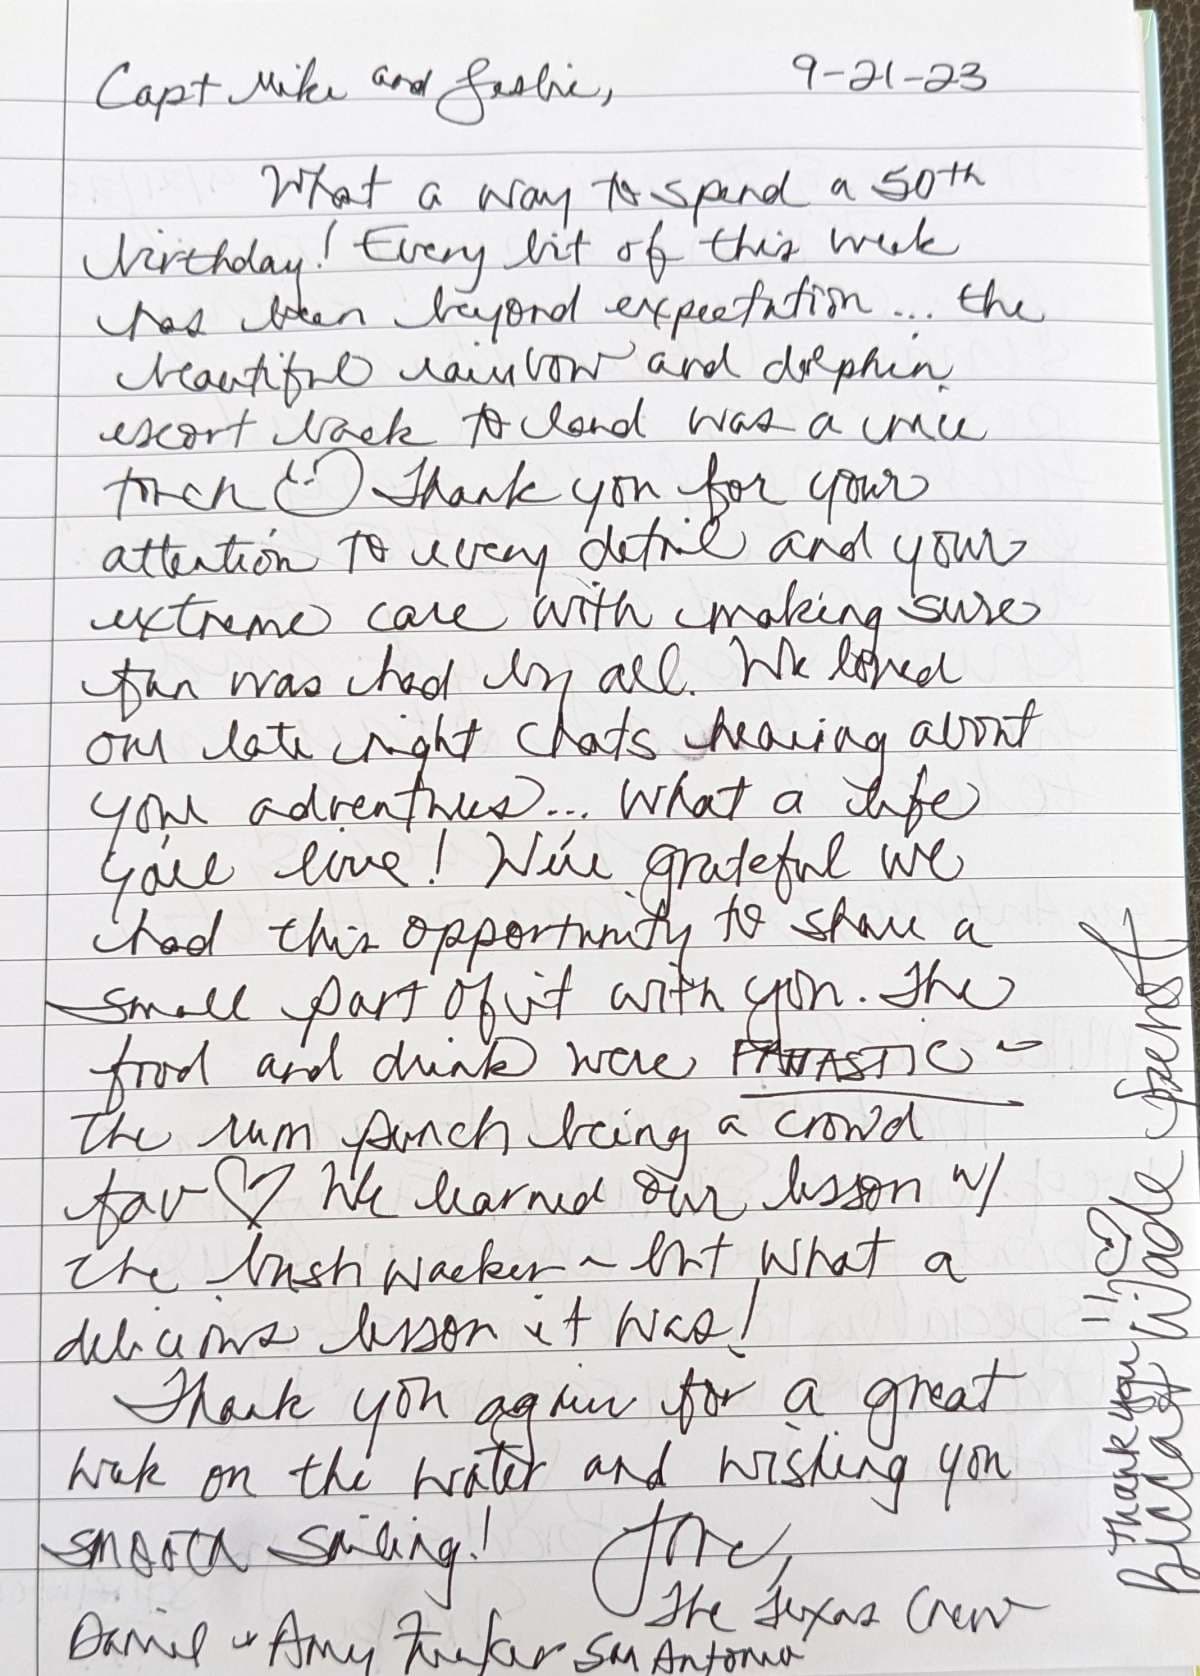 Capt Mike and Leslie, 9-21-23
What a way to spend a 50th
birthday! Every bit of this week
has been beyond expectation... the
beautiful rainbow and dolphin
escort back to land was a nice
touch Thank you for your
attention to every detail and your
extreme care with making sure
fun was had by all. We loved
our late night chats hearing about
your adventures... What a life
y'all live! We're grateful we
had this opportunity to share a
small part of it with you. The
food and drink were FANTASTIC -
the rum punch being a crowd
fav ♡ We learned our lesson w/
the bushwacker ~ but what a
delicious lesson it was!
Thank you again for a great
week on the water and wishing you
smooth sailing! Love,
The Texas Crew
Daniel & Amy San Antonio
Thank you!! ♡
Becca & Wade